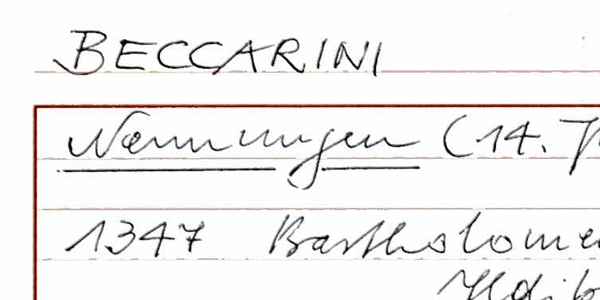 BECCARINI
Nennungen (14. J
1347 Bartholome
Ildib